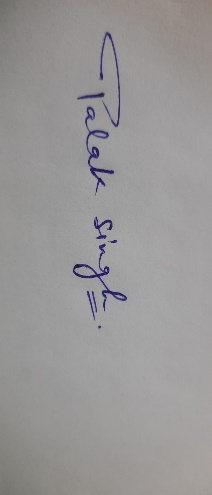 Palak singh.